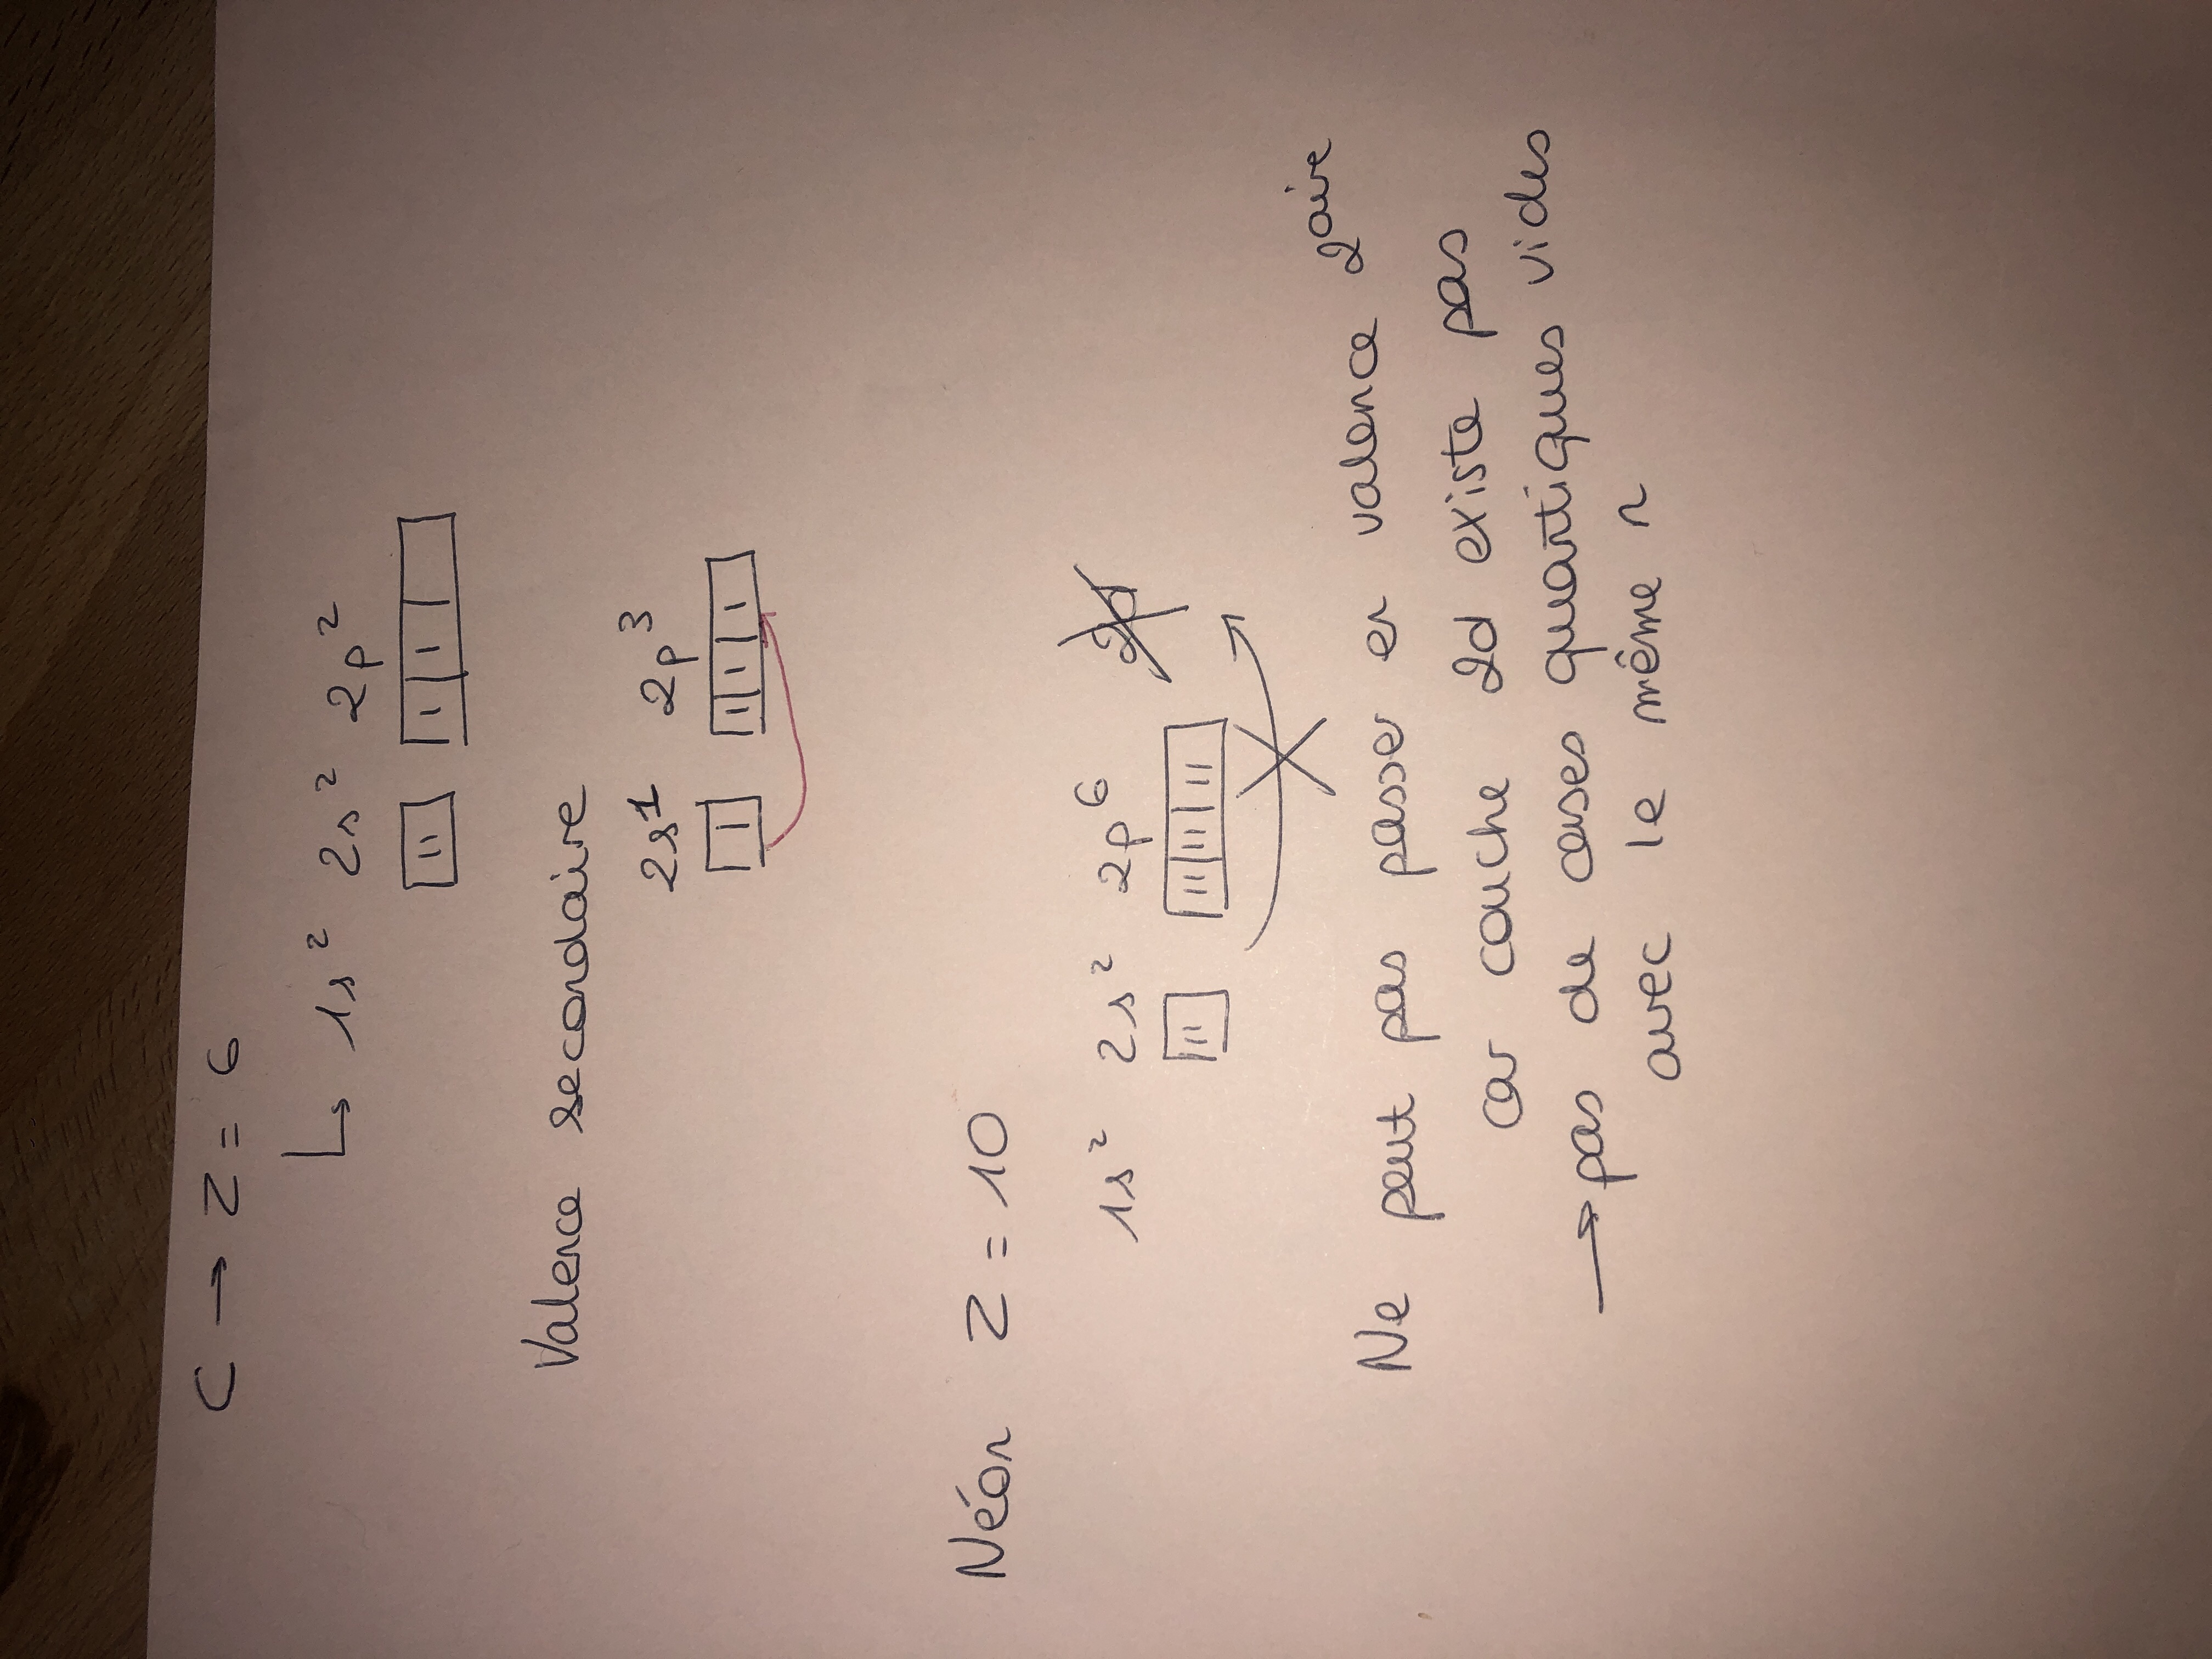 C → Z = 6
↳ 1s² 2s² 2p²
Valence secondaire
2s¹ 2p³
Néon Z = 10
1s² 2s² 2p⁶ 2d
Ne peut pas passer en valence 2aire
car couche 2d existe pas
→ pas de cases quantiques vides
avec le même n